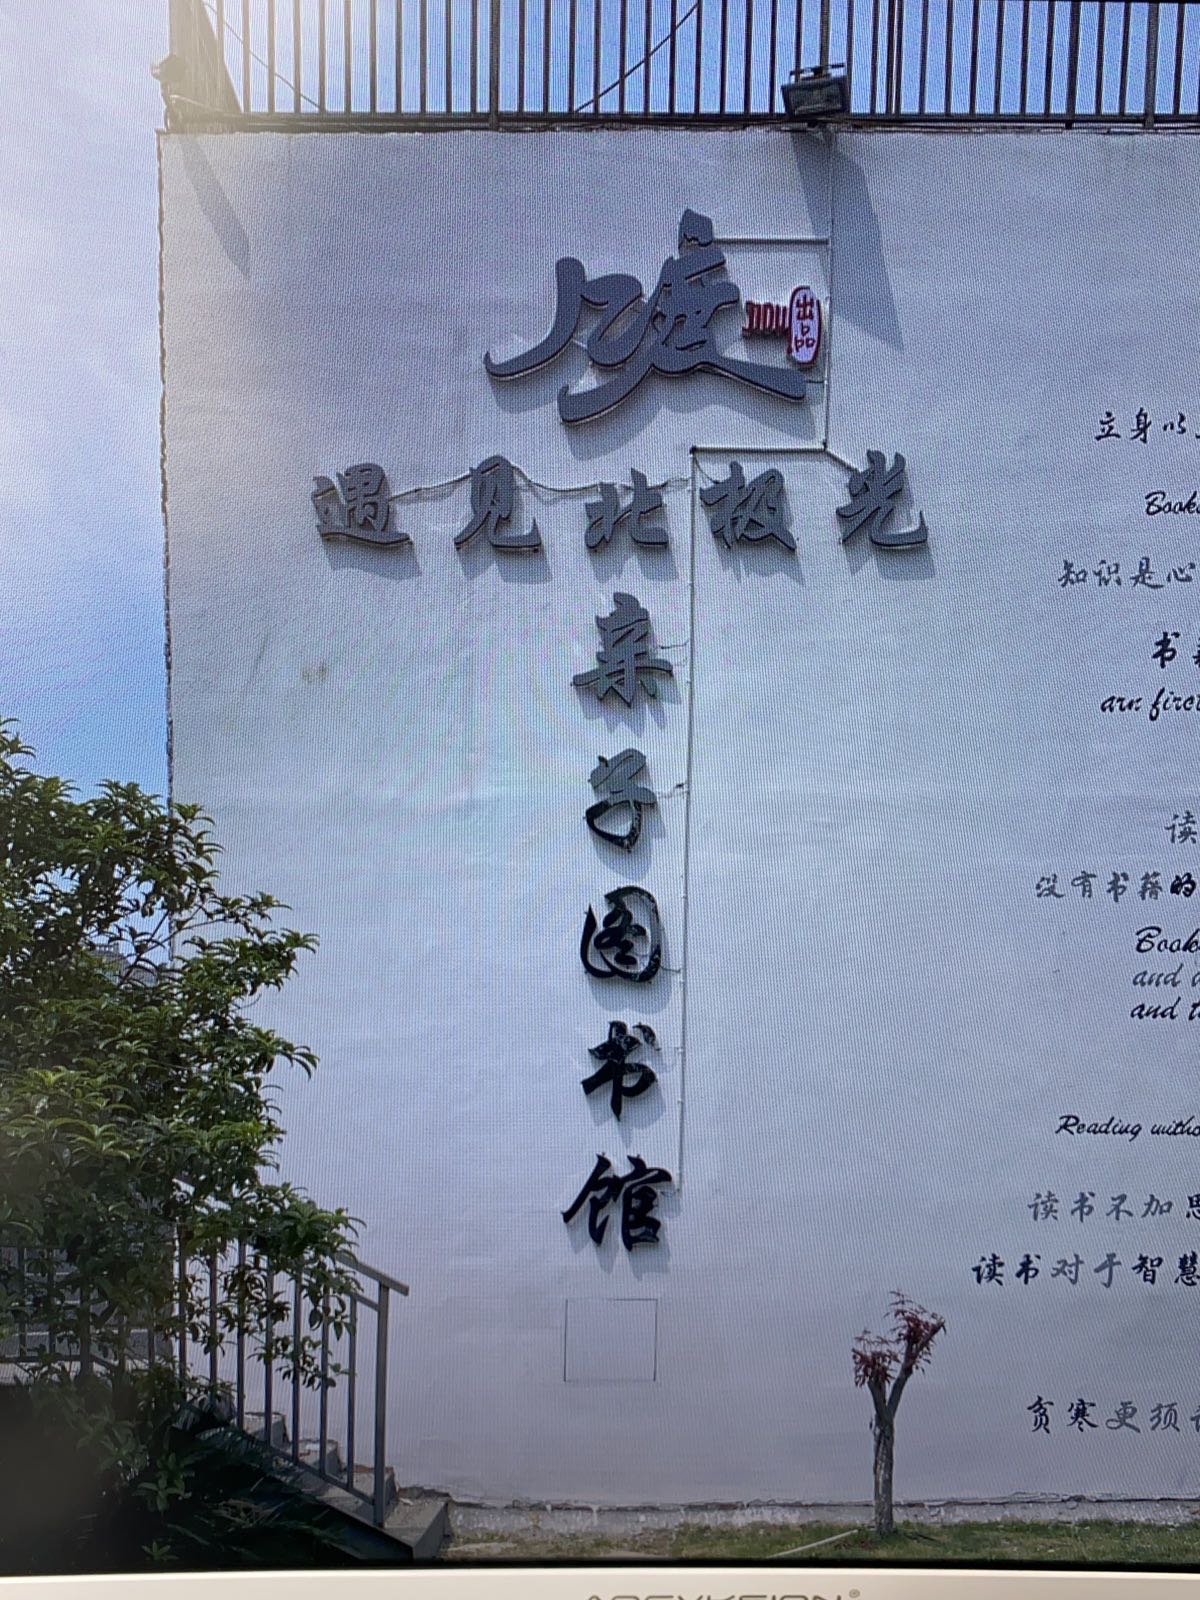 出品
遇见北极光
亲子图书馆
立身以
Books
知识是心
书
arn first
读
没有书籍的
Books
and
and t
Reading witho
读书不加思
读书对于智慧
贫寒更须